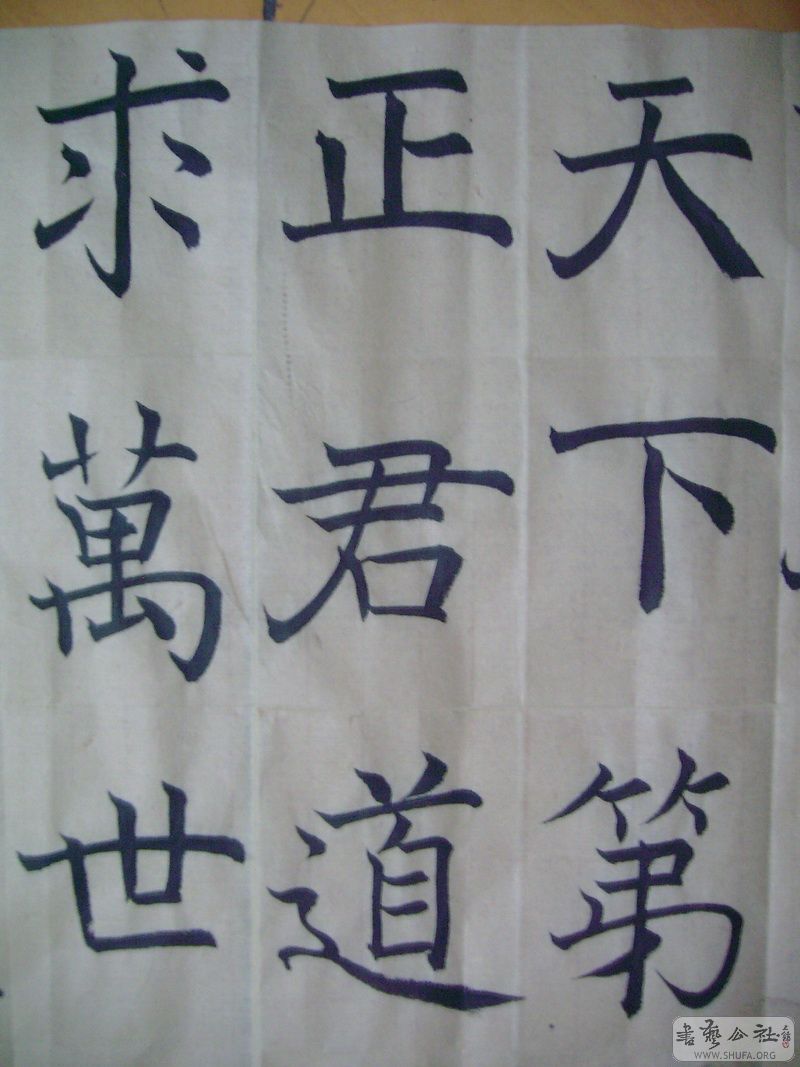 天下第
正君道
求萬世
書藝公社
WWW.SHUFA.ORG